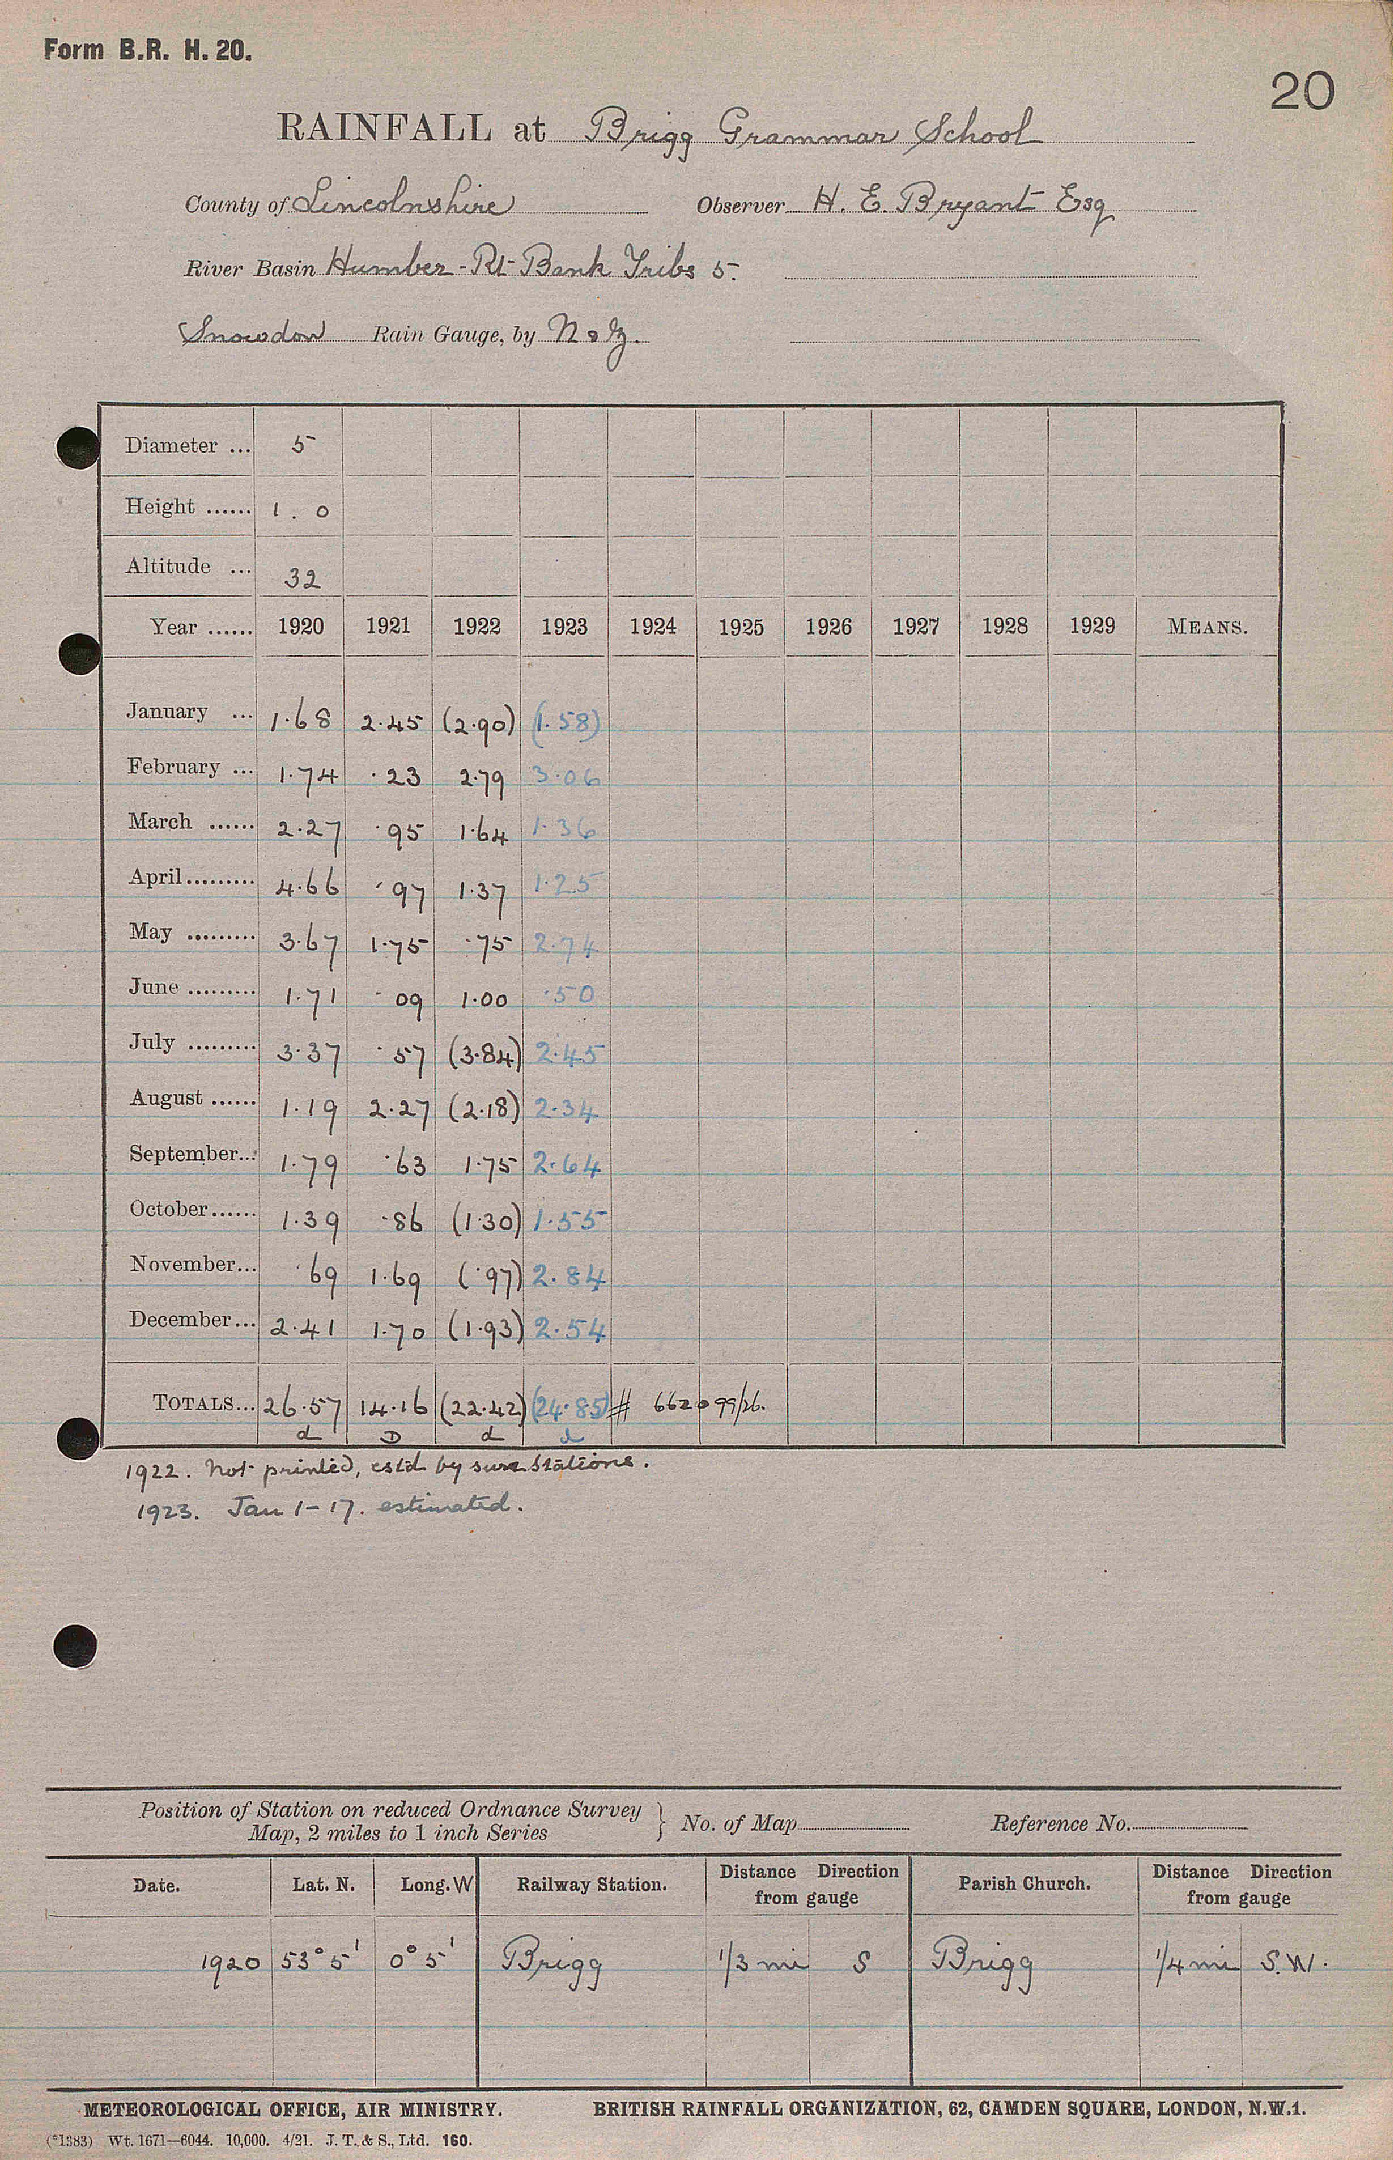 Form B.R. H. 20.
20
RAINFALL at Brigg Grammar School
County of Lincolnshire Observer H. E. Bryant Esq
River Basin Humber - Rt Bank Tribs 5.
Snowdon Rain Gauge, by N & Z.
Diameter ... 5
Height ...... 1 . 0
Altitude ... 32
Year ...... 1920 1921 1922 1923 1924 1925 1926 1927 1928 1929 MEANS.
January ... 1.68 2.45 (2.90) (1.58)
February ... 1.74 .23 2.79 3.06
March ...... 2.27 .95 1.64 1.36
April......... 4.66 .97 1.37 1.25
May ......... 3.67 1.75 .75 2.74
June ......... 1.71 .09 1.00 .50
July ......... 3.37 .57 (3.84) 2.45
August ...... 1.19 2.27 (2.18) 2.34
September... 1.79 .63 1.75 2.64
October...... 1.39 .86 (1.30) 1.55
November... .69 1.69 (.97) 2.84
December... 2.41 1.70 (1.93) 2.54
TOTALS... 26.57 14.16 (22.42) (24.85) # 662099/26.
d D d d
1922. Not printed, est'd by surr. stations.
1923. Jan 1-17. estimated.
Position of Station on reduced Ordnance Survey
Map, 2 miles to 1 inch Series } No. of Map Reference No.
Date. Lat. N. Long. W Railway Station. Distance Direction from gauge Parish Church. Distance Direction from gauge
1920 53° 5' 0° 5' Brigg 1/3 mi S Brigg 1/4 mi S.W.
METEOROLOGICAL OFFICE, AIR MINISTRY. BRITISH RAINFALL ORGANIZATION, 62, CAMDEN SQUARE, LONDON, N.W.1.
(*1383) Wt. 1671—6044. 10,000. 4/21. J. T. & S., Ltd. 160.